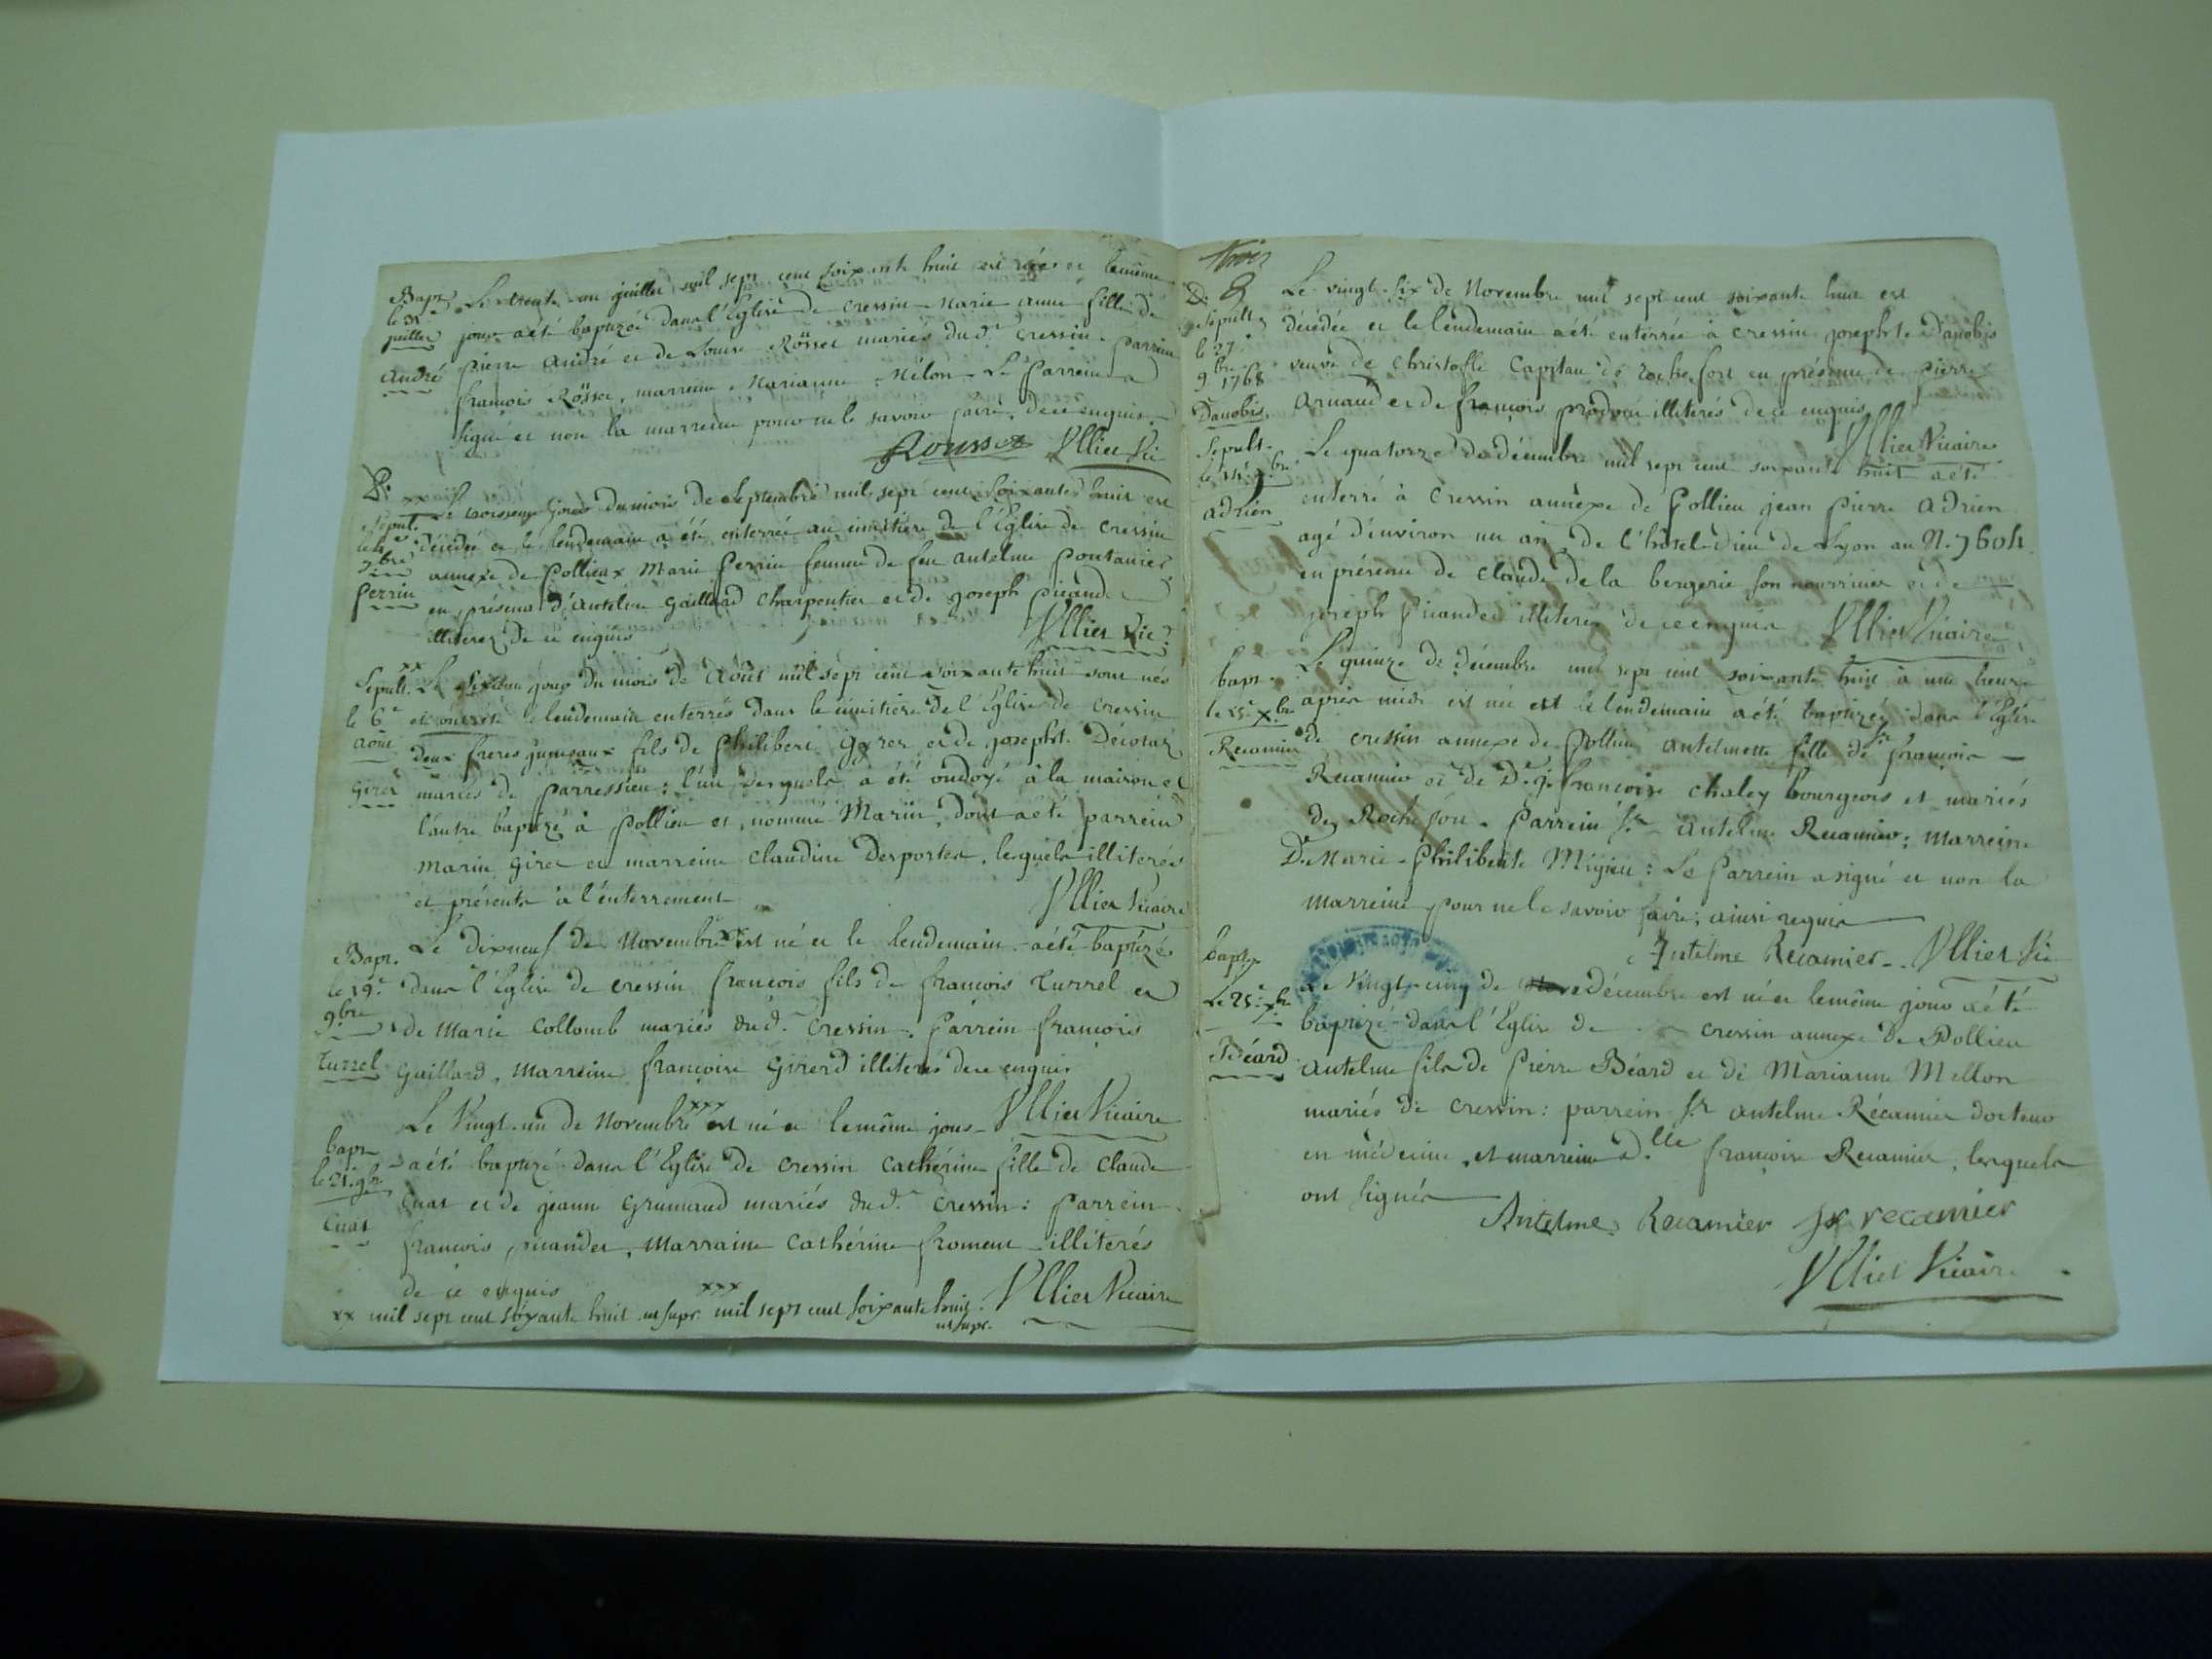 Bapt. Le trente un juillet mil sept cent soixante huit est née et le même
le 31e jour a été baptizée dans l'Eglise de Cressin Marie anne fille de
juillet pierre André et de Louise Rösset mariés dud.t Cressin. parrein
André françois Rösset, marreine Marianne Mélon. Le Parrein a
signé et non la marreine pour ne le savoir faire, de ce enquis
Rousset Ullier Vic
Le troisieme jour du mois de Septembre mil sept cent soixante huit est
Sepult. le 4e décédée et le lendemain a été enterrée au cimetiere de l'Eglise de Cressin
7bre annexe de Pollieux Marie Perrin femme de feu antelme pontanier
perrin en présence d'Antelme Gaillard charpentier et de joseph picand
illiterez de ce enquis Ullier Vic.
Sepult. xx Le sixieme jour du mois de Août mil sept cent soixante huit sont nés
le 6e et ont été le lendemain enterrés dans le cimetiere de l'Eglise de Cressin
Août deux freres jumeaux fils de Philibert Girer et de josepht.
Girer mariés de parressieu: l'un desquels a été ondoyé à la maison et
l'autre baptizé à Pollieu et nommé Marin, dont a été parrein
Marin Girer et marreine Claudine Desportes, lesquels illiterés
et présents à l'enterrement Ullier Vicaire
Bapt. Le dixneuf de Novembre xx est né et le lendemain a été baptizé
le 19e dans l'Eglise de Cressin françois fils de françois Turrel et
9bre de Marie Collomb mariés dud.t Cressin. Parrein françois
Turrel Gaillard, Marreine françoise Girerd illiterés de ce enquis
Le Vingt-un de Novembre xxx est né et le même jour Ullier Vicaire
bapt. a été baptizé dans l'Eglise de Cressin Cathérine fille de Claude
le 21. 9bre Cuat et de jeanne Grumaud mariés dud.t Cressin: Parrein
Cuat françois picandet, Marraine Cathérine froment illiterés
de ce enquis
xx mil sept cent soixante huit ut supr. xxx mil sept cent soixante huit ut supr. Ullier Vicaire
trois
Le vingt-six de Novembre mil sept cent soixante huit est
Sepult. le 27e décédée et le lendemain a été enterrée à Cressin josephte Danobis
9bre 1768 veuve de Christofle Capitan de rochefort en présence de pierre
Danobis Arnaud et de françois illiterés de ce enquis
Ullier Vicaire
Sepult. Le quatorze de décembre mil sept cent soixante huit a été
le 14e xbre enterré à Cressin annèxe de Pollieu jean Pierre Adrien
adrien agé d'environ un an, de l'hôtel-Dieu de Lyon au N. 7604
en présence de Claude de la bergerie son nourricier et de
joseph Picandet illiterés de ce enquis Ullier Vicaire
bapt. Le quinze de décembre mil sept cent soixante huit à une heure
le 15e xbre après midi est née et le lendemain a été baptizée dans l'Eglise
Recamier de Cressin annexe de Pollieu Antelmette fille de sr françois
Recamier et de De. j. françoise Chaley bourgeois et mariés
de Rochefort. Parrein Sr Antelme Recamier; Marreine
De Marie-Philiberte Migieu: Le Parrein a signé et non la
marreine pour ne le savoir faire; ainsi requis
Antelme Recamier Ullier Vic
bapt. Le Vingt-cinq de décembre est né et le même jour a été
Le 25e xbre baptizé dans l'Eglise de Cressin annexe de Pollieu
Béard Antelme fils de Pierre Béard et de Marianne Mellon
mariés de Cressin: parrein Sr Antelme Récamier docteur
en médecine, et marreine D.lle françoise Recamier, lesquels
ont signés
Antelme Recamier fse recamier
Ullier Vicaire